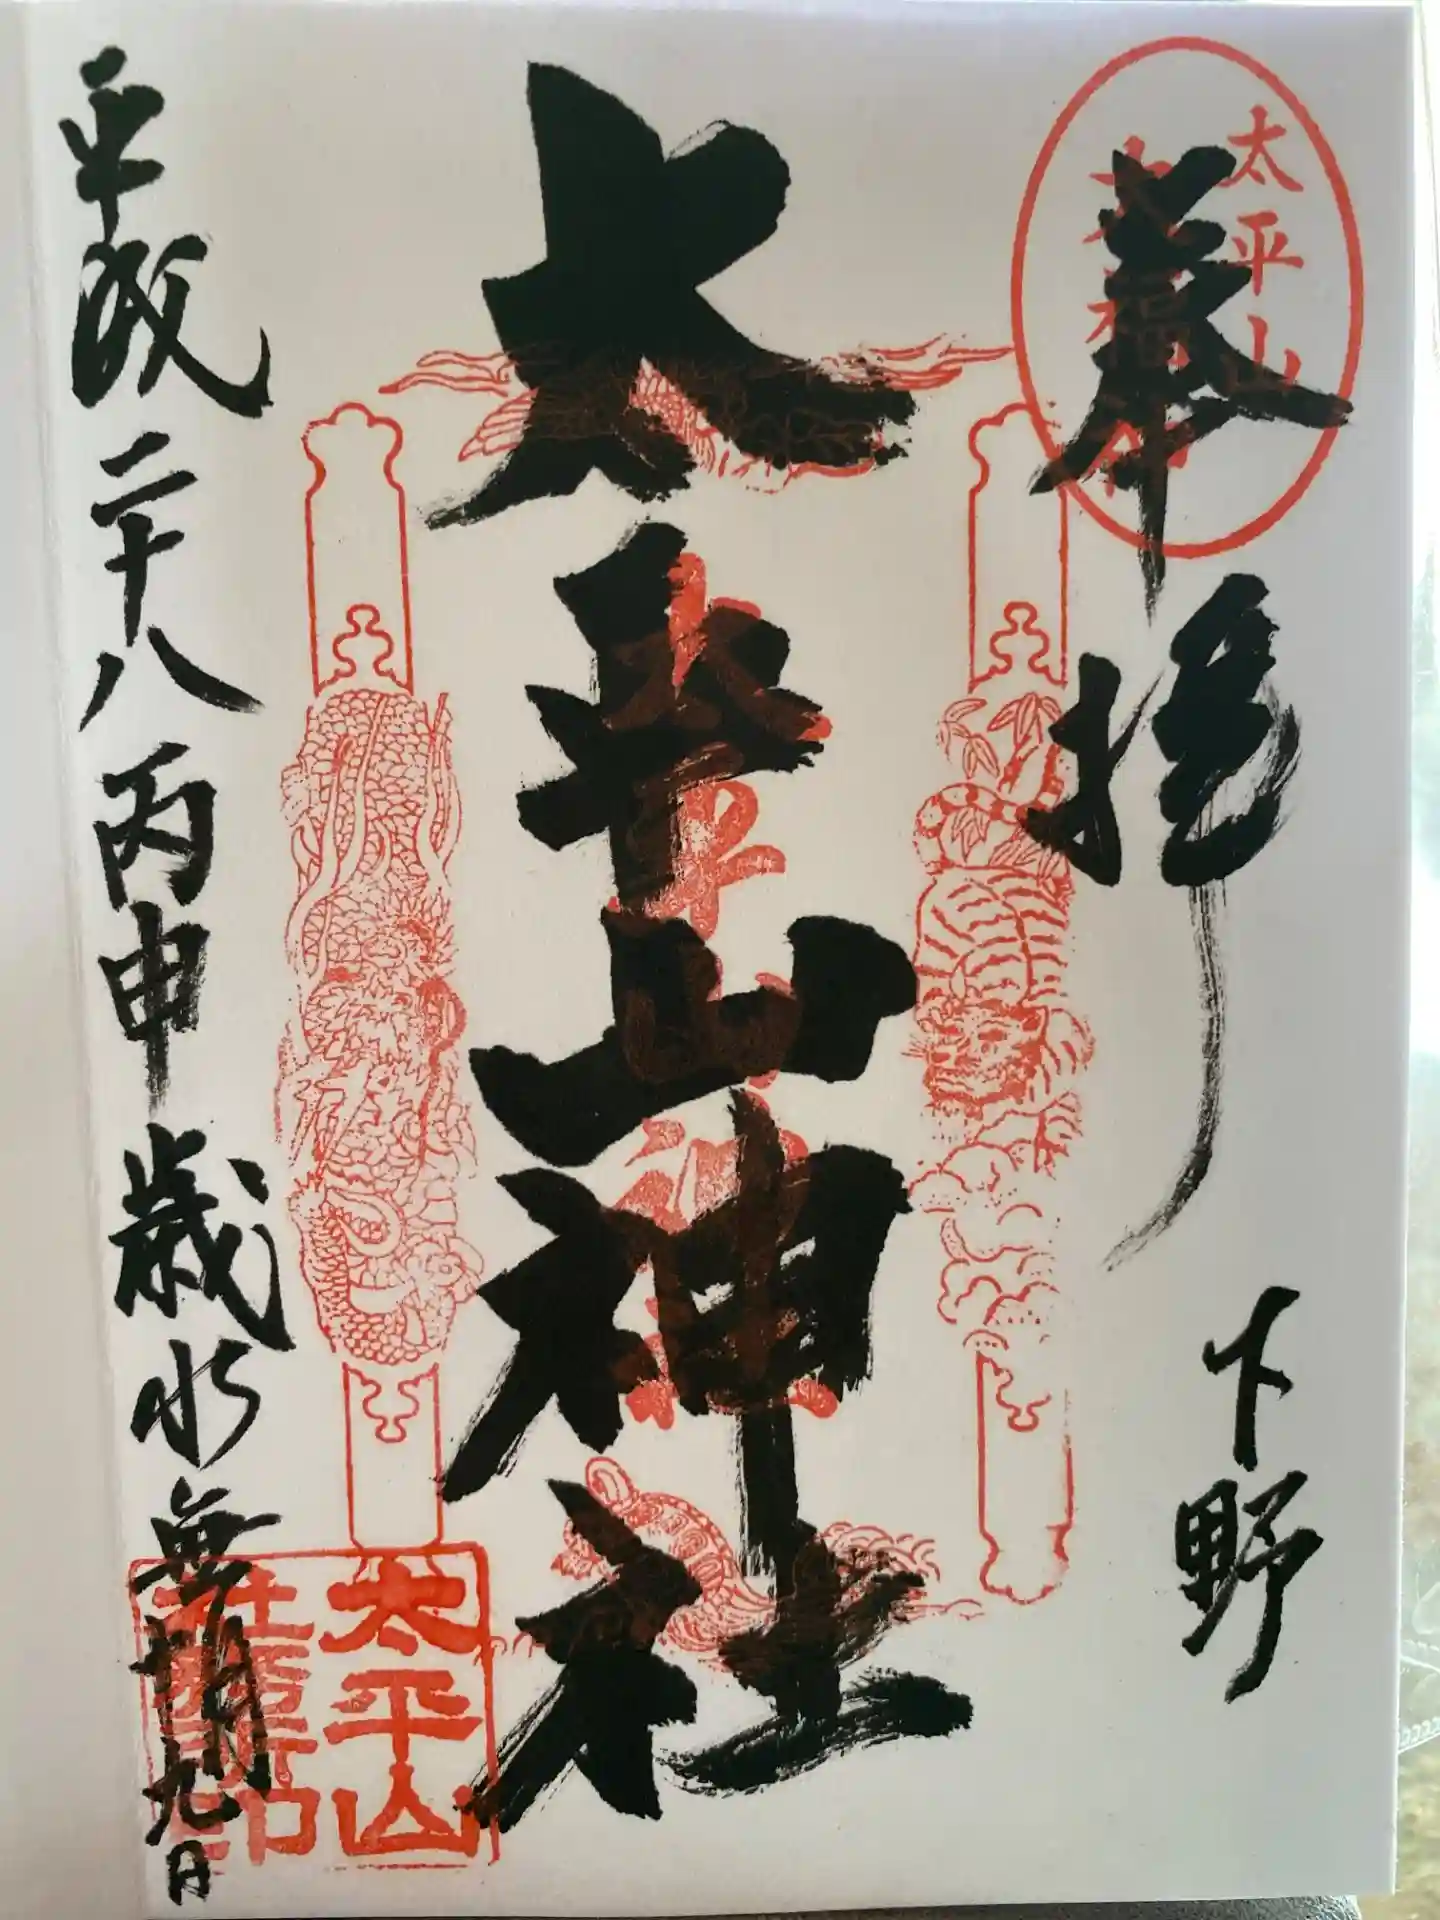 奉拝
下野
太平山
太平山神社
太平山神
平成二十八丙申歳水無月九日
太平山
社務所印